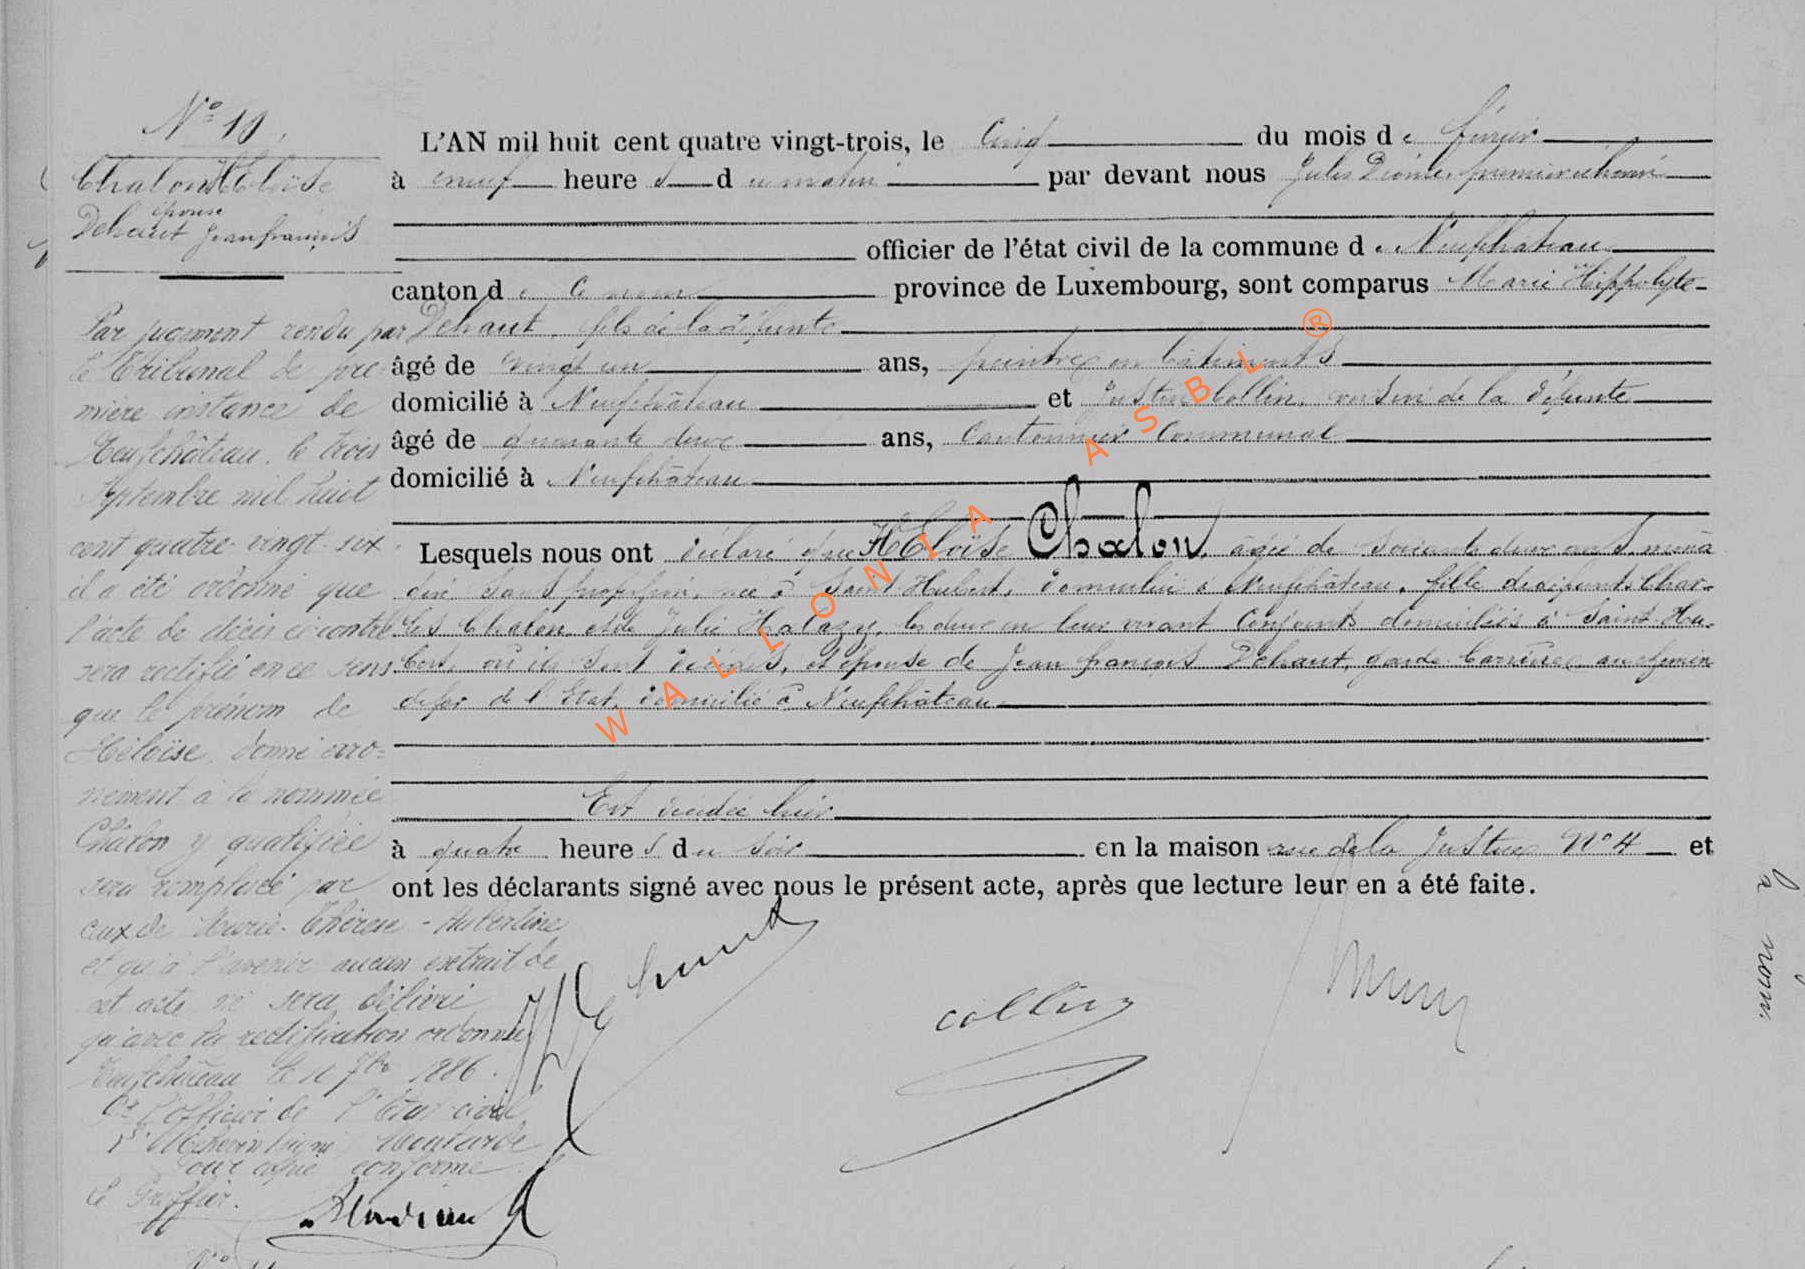 N° 10.
Chalon Héloïse
épouse
Dehaut Jean françois
Par jugement rendu par
le Tribunal de pre-
mière instance de
Neufchâteau, le trois
Septembre mil huit
cent quatre vingt-six
il a été ordonné que
l'acte de décès ci contre
sera rectifié en ce sens
que le prénom de
Héloïse, donné erro-
nément à la nommée
Châlon y qualifiée
sera remplacé par
ceux de Marie-Thérèse-Hubertine
et qu'à l'avenir aucun extrait de
cet acte ne sera délivré
qu'avec la rectification ordonnée
Neufchâteau le 11 7bre 1886.
l'officier de l'État-civil
Pour copie conforme
Le Greffier.
L'AN mil huit cent quatre vingt-trois, le cinq du mois de février
à neuf heures du matin par devant nous Jules premier échevin
officier de l'état civil de la commune de Neufchâteau
canton de ce nom province de Luxembourg, sont comparus Marie Hippolyte
Dehaut, fils de la défunte
âgé de vingt un ans, peintre en bâtiments
domicilié à Neufchâteau et Justin Collin, voisin de la défunte
âgé de quarante deux ans, Cantonnier Communal
domicilié à Neufchâteau
Lesquels nous ont déclaré que Héloïse Chalon, âgée de soixante deux ans, ména
gère sans profession, née à Saint Hubert, domiciliée à Neufchâteau, fille de défunts Char-
les Chalon et de Julie Halazy, les deux en leur vivant Conjoints domiciliés à Saint-Hu-
bert, où ils sont décédés, et épouse de Jean françois Dehaut, garde barrière au chemin
de fer de l'État, domicilié à Neufchâteau
Est décédée hier
à quatre heures du soir en la maison rue de la Justice N° 4 et
ont les déclarants signé avec nous le présent acte, après que lecture leur en a été faite.
Dehaut
collin
WALLONIA ASBL ®